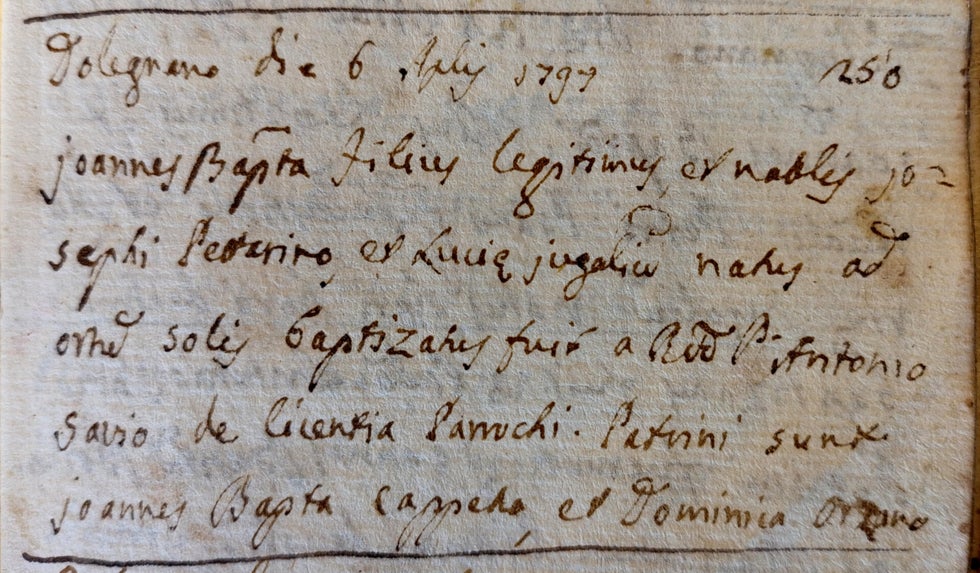 Dolegnano die 6 Aplis 1797 250
joannes Bapta filius legitimus et natlis jo=
sephi Pettarino et Lucię jugaliu natus ad
ortu solis baptizatus fuit a Rdo P. Antonio
savio de licentia Parrochi. Patrini sunt
joannes Bapta et Dominica